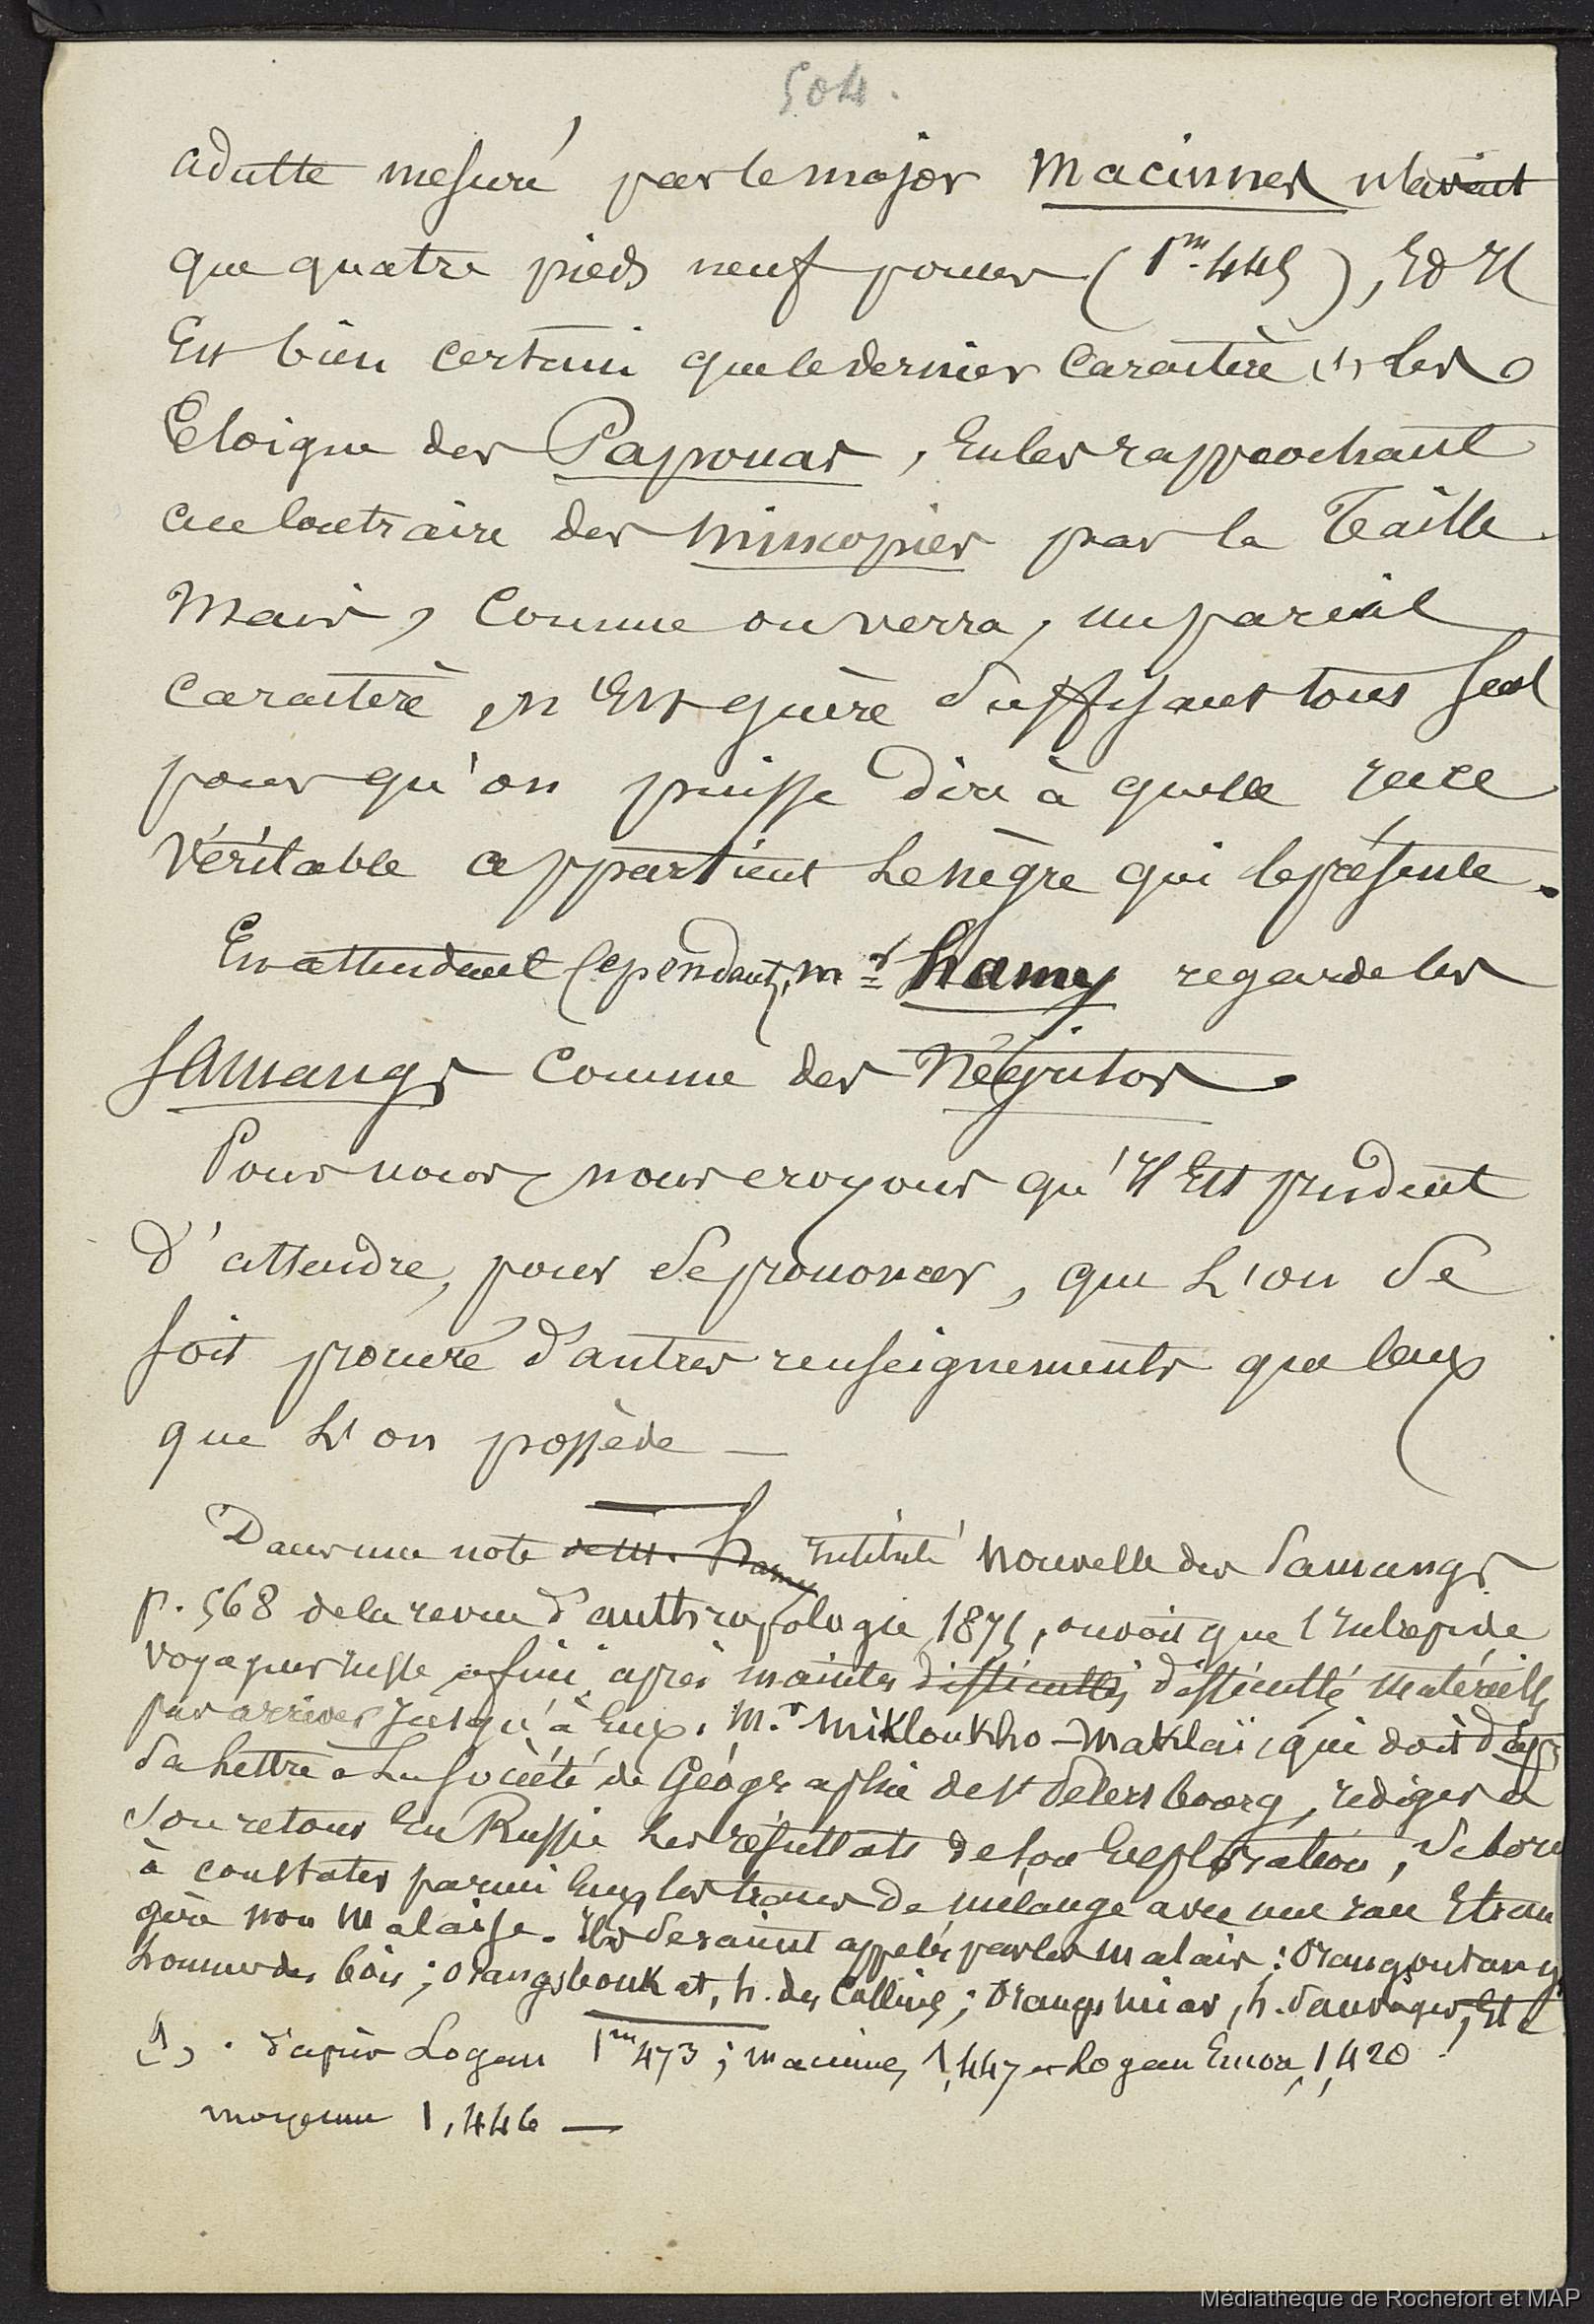 504.
adulte mesuré par le major Macinnes n'avait
que quatre pieds neuf pouces (1m.445), Ed Il
Est bien certain que le dernier Caractère (1) les
Eloigne des Papouas, En les rapprochant
au Contraire des Mincopies par la Taille.
Mais, Comme on verra, un pareil
Caractère, n'Est guère suffisant tout seul
pour qu'on puisse dire à quelle race
Véritable appartient Le nègre qui le présente.
En attendant Cependant, mr Hamy regarde les
Samangs Comme des Négritos.
Pour nous, nous croyons qu'Il Est prudent
d'attendre, pour se prononcer, que L'on se
soit procuré d'autres renseignements que Ceux
que L'on possède —
Dans une note de M. Hamy Intitulé Nouvelle des Samangs
p. 568 de la revue d'anthropologie, 1875, on voit que l'Intrepide
Voyageur russe a fini, après maintes difficultés difficultés matérielles
par arriver Jusqu'à Eux. M.r Mikloukho-Maklaï, qui doit d'ap
Sa Lettre à La Société de Géographie de St Petersbourg, rediger à
Son retour En Russie Les résultats de son Exploration,
à constater parmi Eux les traces de mélange avec une race Etran
gère non Malaise. Ils Seraient appelés par les Malais: Orangs outang
hommes des bois; Orangs boukat, h. des Collines; Orangs liar, h. Sauvages, Etc
(1). d'après Logan 1m473; Macinnes, 1,447 et Logan Encor, 1,420
moyenne 1,446 —
Médiathèque de Rochefort et MAP